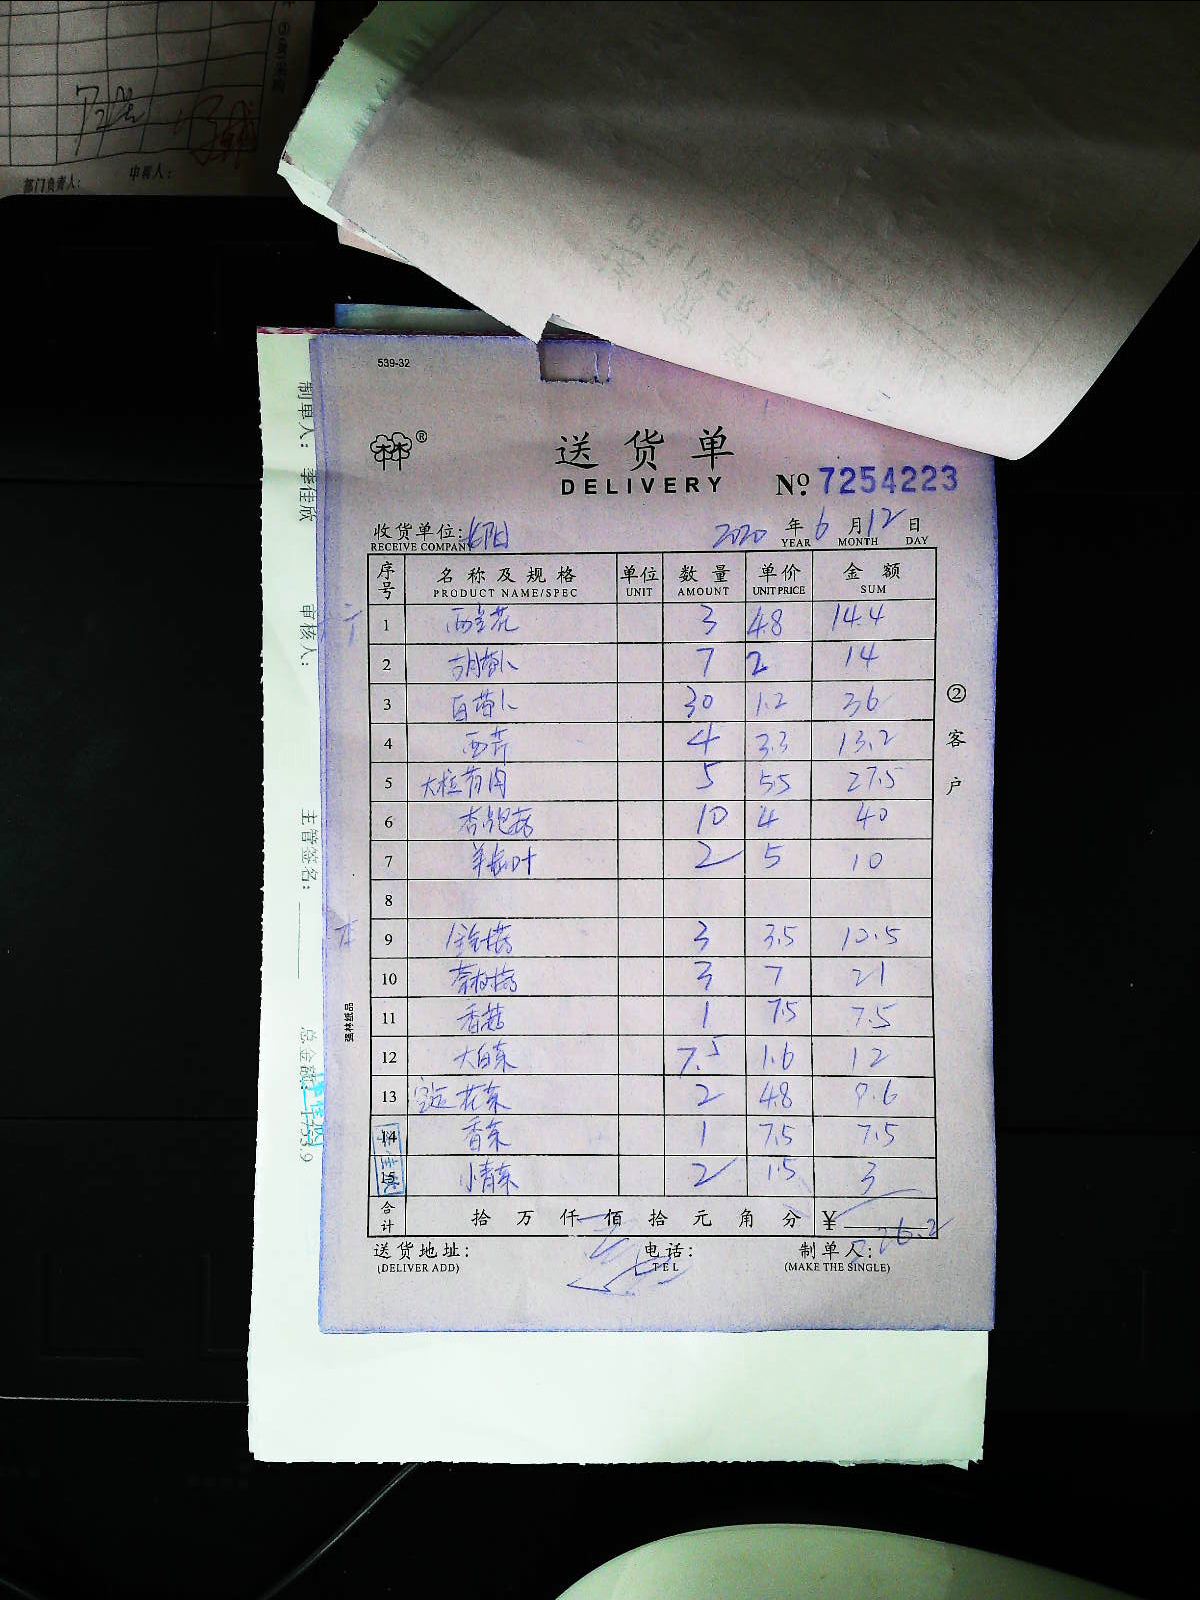 部门负责人: 申请人:
539-32
林林®
送货单
DELIVERY № 7254223
收货单位: 2020 年 6 月 12 日
RECEIVE COMPANY YEAR MONTH DAY
序号 名称及规格 单位 数量 单价 金额
PRODUCT NAME/SPEC UNIT AMOUNT UNIT PRICE SUM
1 西兰花 3 4.8 14.4
2 胡萝卜 7 2 14
3 白萝卜 30 1.2 36
4 西芹 4 3.3 13.2
5 大粒 肉 5 5.5 27.5
6 杏鲍菇 10 4 40
7 叶 2 5 10
8
9 金针菇 3 3.5 10.5
10 茶树菇 3 7 21
11 香菇 1 7.5 7.5
12 大白菜 7.5 1.6 12
13 花菜 2 4.8 9.6
14 香菜 1 7.5 7.5
小青菜 2 1.5 3
合计 拾 万 仟 佰 拾 元 角 分 ¥ 26.2
送货地址: 电话: 制单人:
(DELIVER ADD) TEL (MAKE THE SINGLE)
②客户
强林纸品
制单人: 李佳欣 审核人: 主管签名: 总金额: